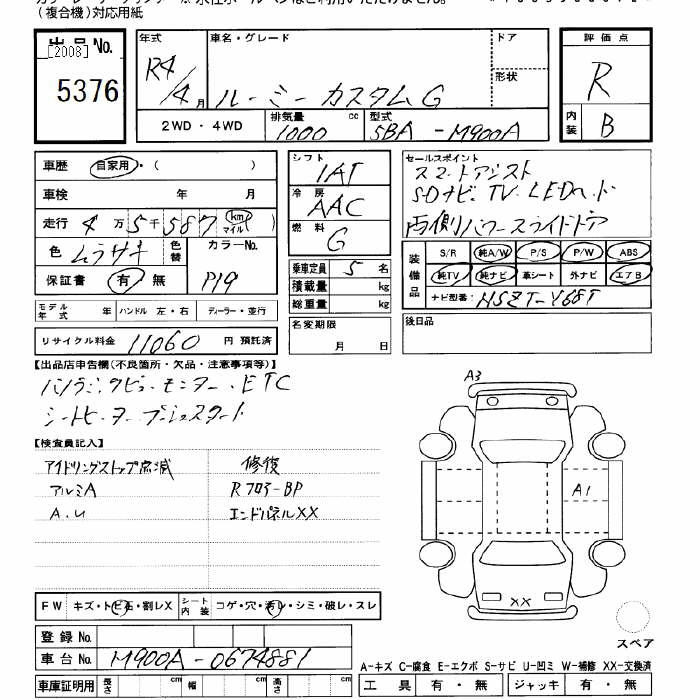 (複合機)対応用紙
出品No.
[2008]
5376
年式 R4/4月
車名・グレード ルーミーカスタムG
ドア
形状
2WD・4WD
排気量 1000 cc
型式 5BA-M900A
評価点 R
内装 B
車歴 自家用・( )
車検 年 月
走行 4万5千587 km マイル )
色 ムラサキ 色替
カラーNo. P19
保証書 有 無
モデル年式 年 ハンドル 左・右 ディーラー・並行
リサイクル料金 11060 円 預託済
シフト IAT
冷房 AAC
燃料 G
乗車定員 5 名
積載量 kg
総重量 kg
名変期限
月 日
セールスポイント
スマートアシスト
SDナビ.TV.LEDヘッド
両側パワースライドドア
装備品
S/R 純A/W P/S P/W ABS
純TV 純ナビ 革シート 外ナビ エアB
ナビ型番: NSZT-Y68T
後日品
【出品店申告欄(不良箇所・欠品・注意事項等)】
パノラミックビュー・モニター・ETC
シートヒーター プッシュスタート
【検査員記入】
アイドリングストップ点滅 修復
アルミA R フロア-BP
A.U エンドパネルXX
A3
A1
XX
スペア
FW キズ・トビ石・割レX シート内装 コゲ・穴・汚レ・シミ・破レ・スレ
登録No.
車台No. M900A-0674881
車庫証明用 長さ cm 幅 cm 高さ cm
A-キズ C-腐食 E-エクボ S-サビ U-凹ミ W-補修 XX-交換済
工具 有・無 ジャッキ 有・無